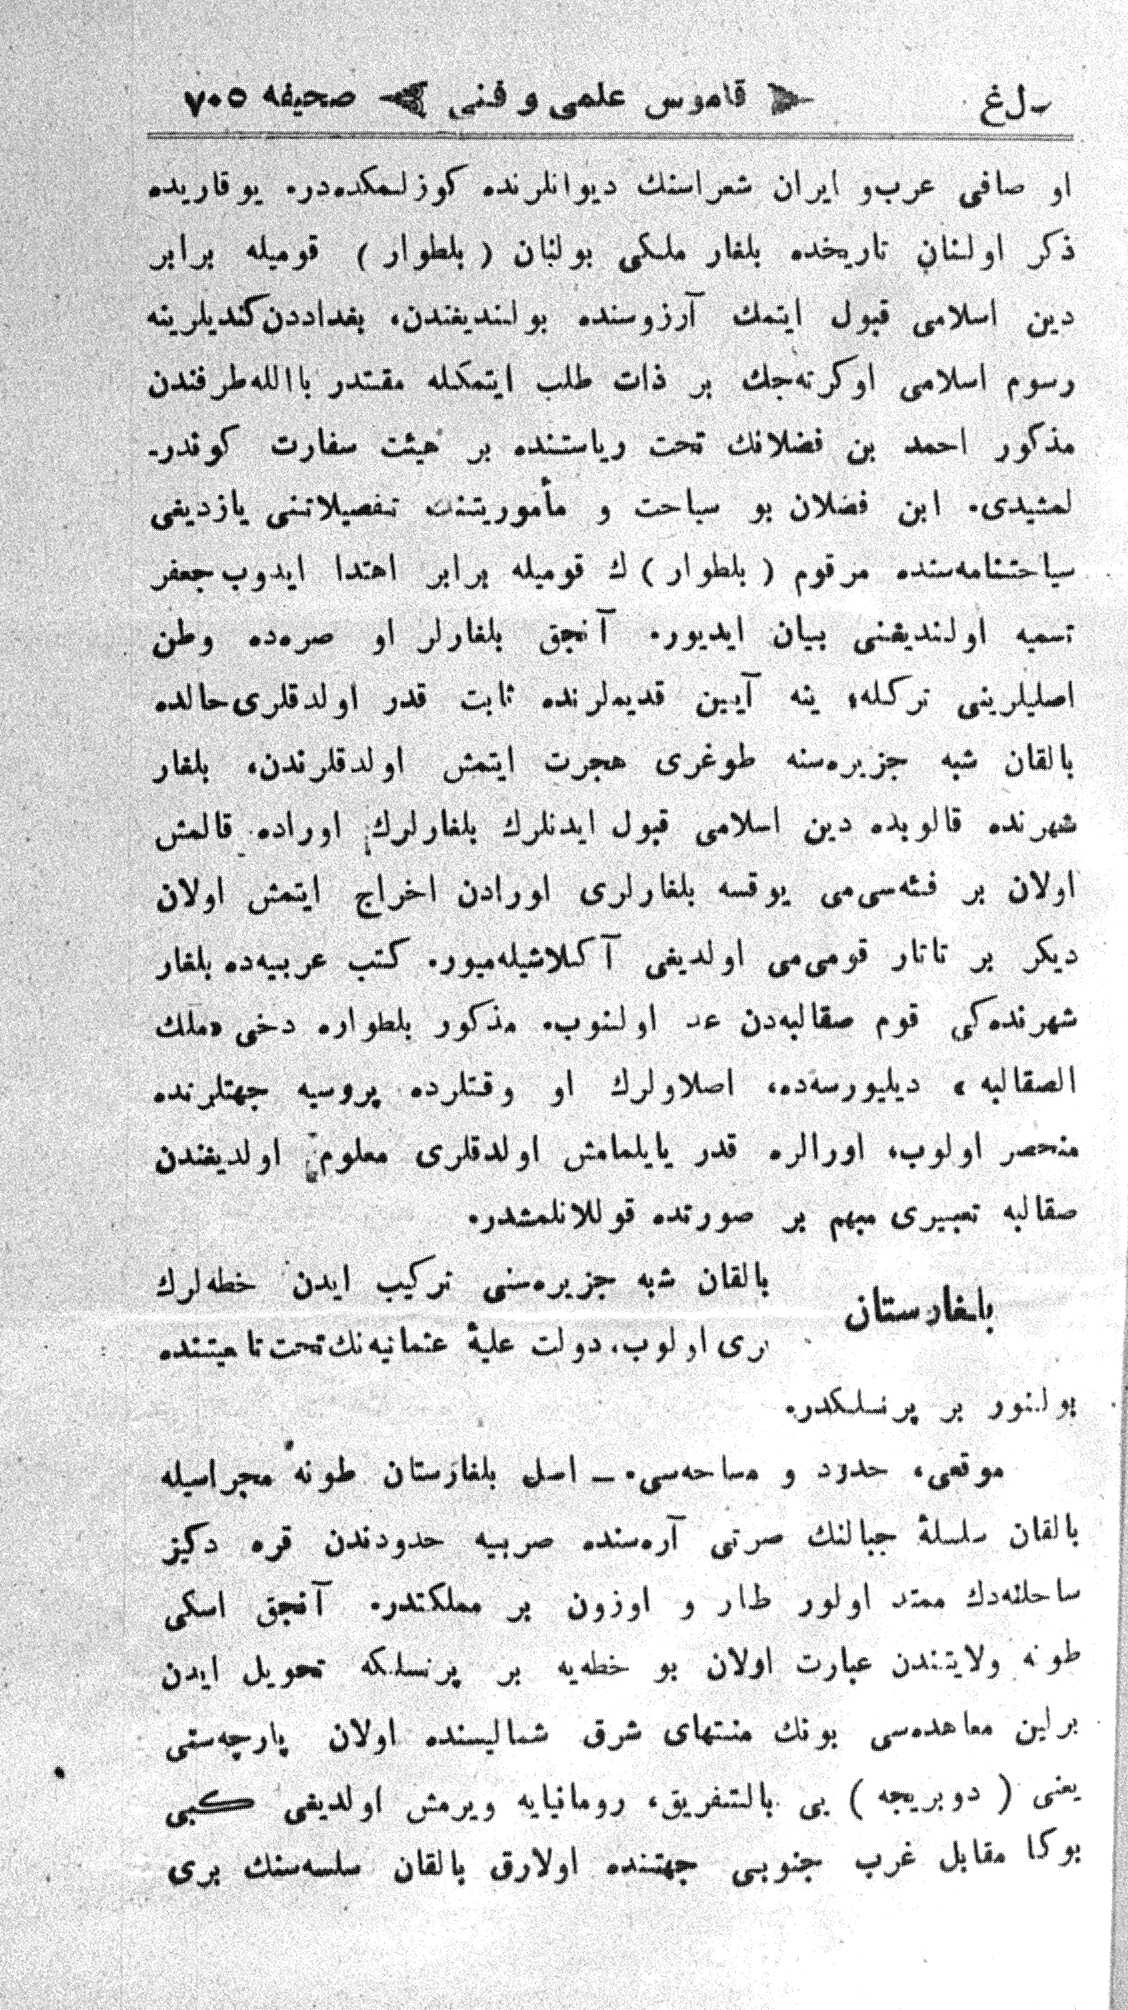 بـلـغ قاموس علمی و فنی صحیفه ٧٠٥
او صافی عرب‌و ایران شعراسنك دیوانلرنده كوزلمكده‌در. یوقاریده
ذكر اولنان تاریخده بلغار ملكی بولنان ( بلطوار ) قومیله برابر
دین اسلامی قبول ایتمك آرزوسنده بولندیغندن، بغداددن كندیلرینه
رسوم اسلامی اوكرته‌جك بر ذات طلب ایتمكله مقتدر باالله طرفندن
مذكور احمد بن فضلانك تحت ریاستنده بر هیئت سفارت كوندر-
لمشیدی. ابن فضلان بو سیاحت و مأموریتنك تفصیلاتنی یازدیغی
سیاحتنامه‌سنده مرقوم ( بلطوار ) ك قومیله برابر اهتدا ایدوب جعفر
تسمیه اولندیغنی بیان ایدیور. آنجق بلغارلر او صره‌ده وطن
اصلیلرینی تركله، ینه آیین قدیملرنده ثابت قدر اولدقلری حالده
بالقان شبه جزیره‌سنه طوغری هجرت ایتمش اولدقلرندن، بلغار
شهرنده قالوبده دین اسلامی قبول ایدنلرك بلغارلرك اوراده قالمش
اولان بر فئه‌سی‌می یوقسه بلغارلری اورادن اخراج ایتمش اولان
دیكر بر تاتار قومی‌می اولدیغی آكلاشیله‌میور. كتب عربیه‌ده بلغار
شهرنده‌كی قوم صقالبه‌دن عد اولنوب. مذكور بلطواره دخی «ملك
الصقالبه » دیلیورسه‌ده، اصلاولرك او وقتلرده پروسیه جهتلرنده
منحصر اولوب، اورالره قدر یایلمامش اولدقلری معلوم اولدیغندن
صقالبه تعبیری مبهم بر صورتده قوللانلمشدر.
بلغارستان بالقان شبه جزیره‌سنی تركیب ایدن خطه‌لرك
بری اولوب، دولت علیهٔ عثمانیه‌نك تحت تابعیتنده
بولنور بر پرنسلكدر.
موقعی، حدود و مساحه‌سی. — اصل بلغارستان طونه مجراسیله
بالقان سلسلهٔ جبالنك صرتی آره‌سنده صربیه حدودندن قره دكیز
ساحلنه‌دك ممتد اولور طار و اوزون بر مملكتدر. آنجق اسكی
طونه ولایتندن عبارت اولان بو خطه‌یه بر پرنسلكه تحویل ایدن
برلین معاهده‌سی بونك منتهای شرق شمالیسنده اولان پارچه‌سنی
یعنی ( دوبریجه ) یی بالتفریق، رومانیایه ویرمش اولدیغی كبی
بوكا مقابل غرب جنوبی جهتنده اولارق بالقان سلسه‌سنك بری